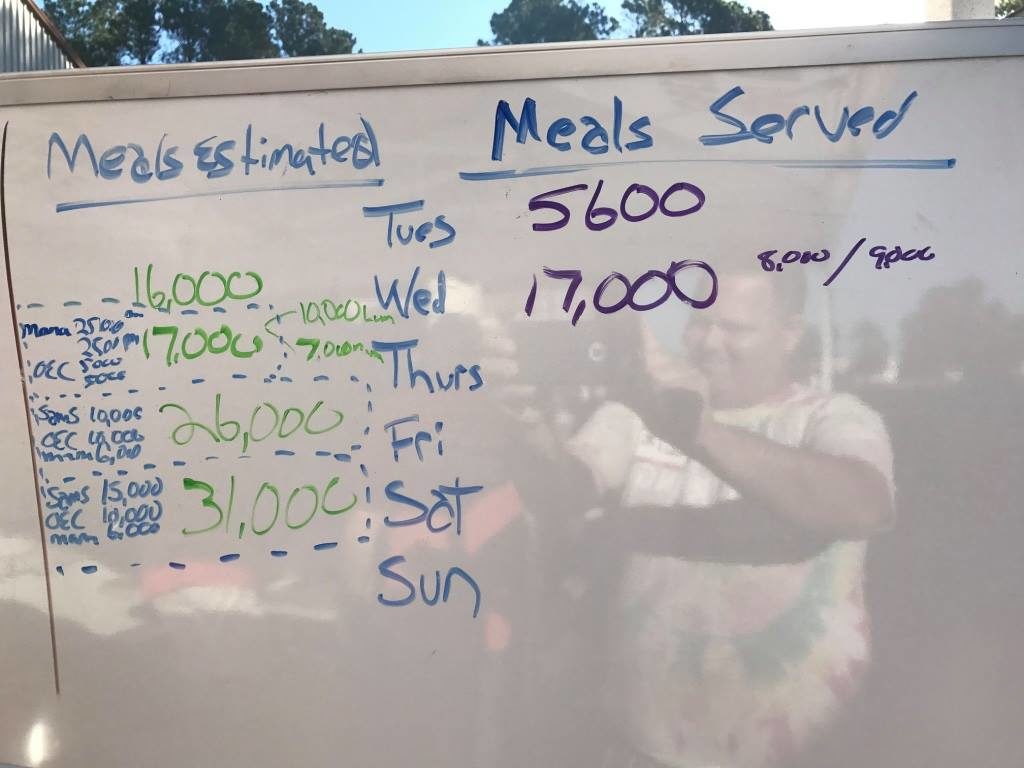 Meals Estimated
Meals Served
Tues 5600
16,000 Wed 17,000 8,000 / 9,000
2500
2500 17,000 10,000 7,000 Thurs
OEC 5000
5000
Sams 10,000
OEC 10,000 26,000 Fri
mam 6,000
Sams 15,000
OEC 10,000 31,000 Sat
mam 6,000
Sun